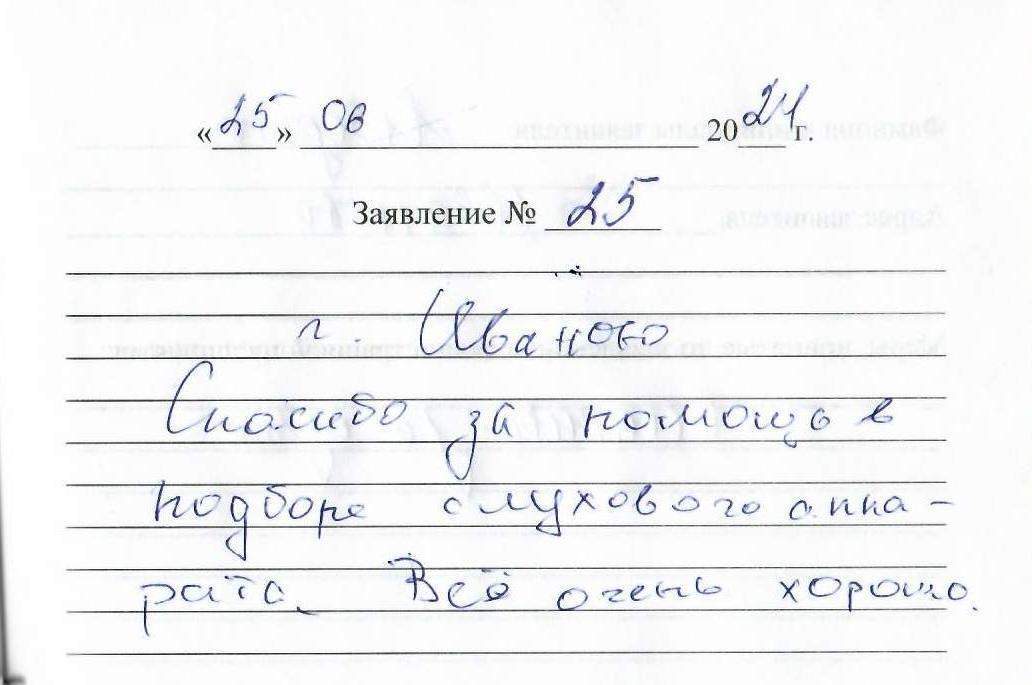 «25» 06 2024 г.
Заявление № 25
г. Иваново
Спасибо за помощь в
подборе слухового аппа-
рата. Всё очень хорошо.